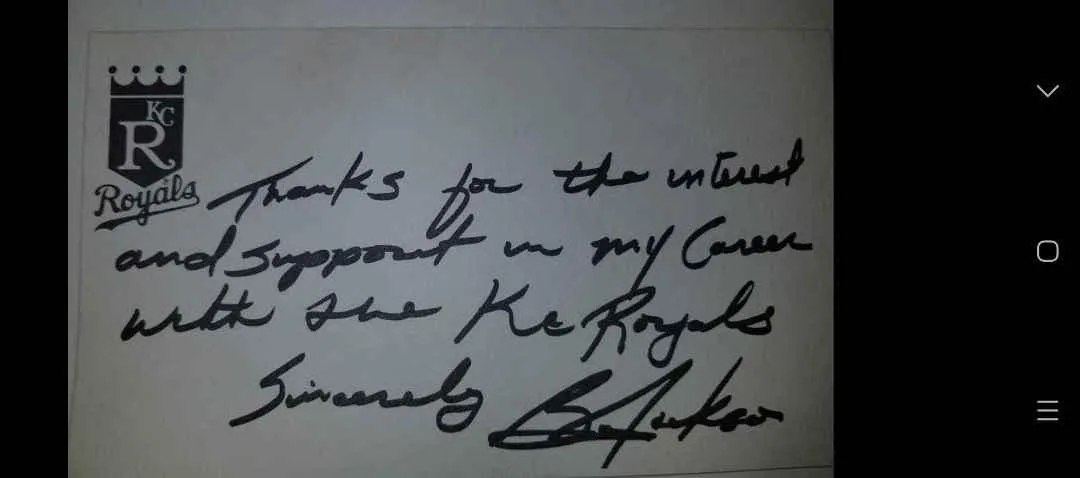 KC
R
Royals
Thanks for the interest
and support in my Career
with the KC Royals
Sincerely Bo Jackson